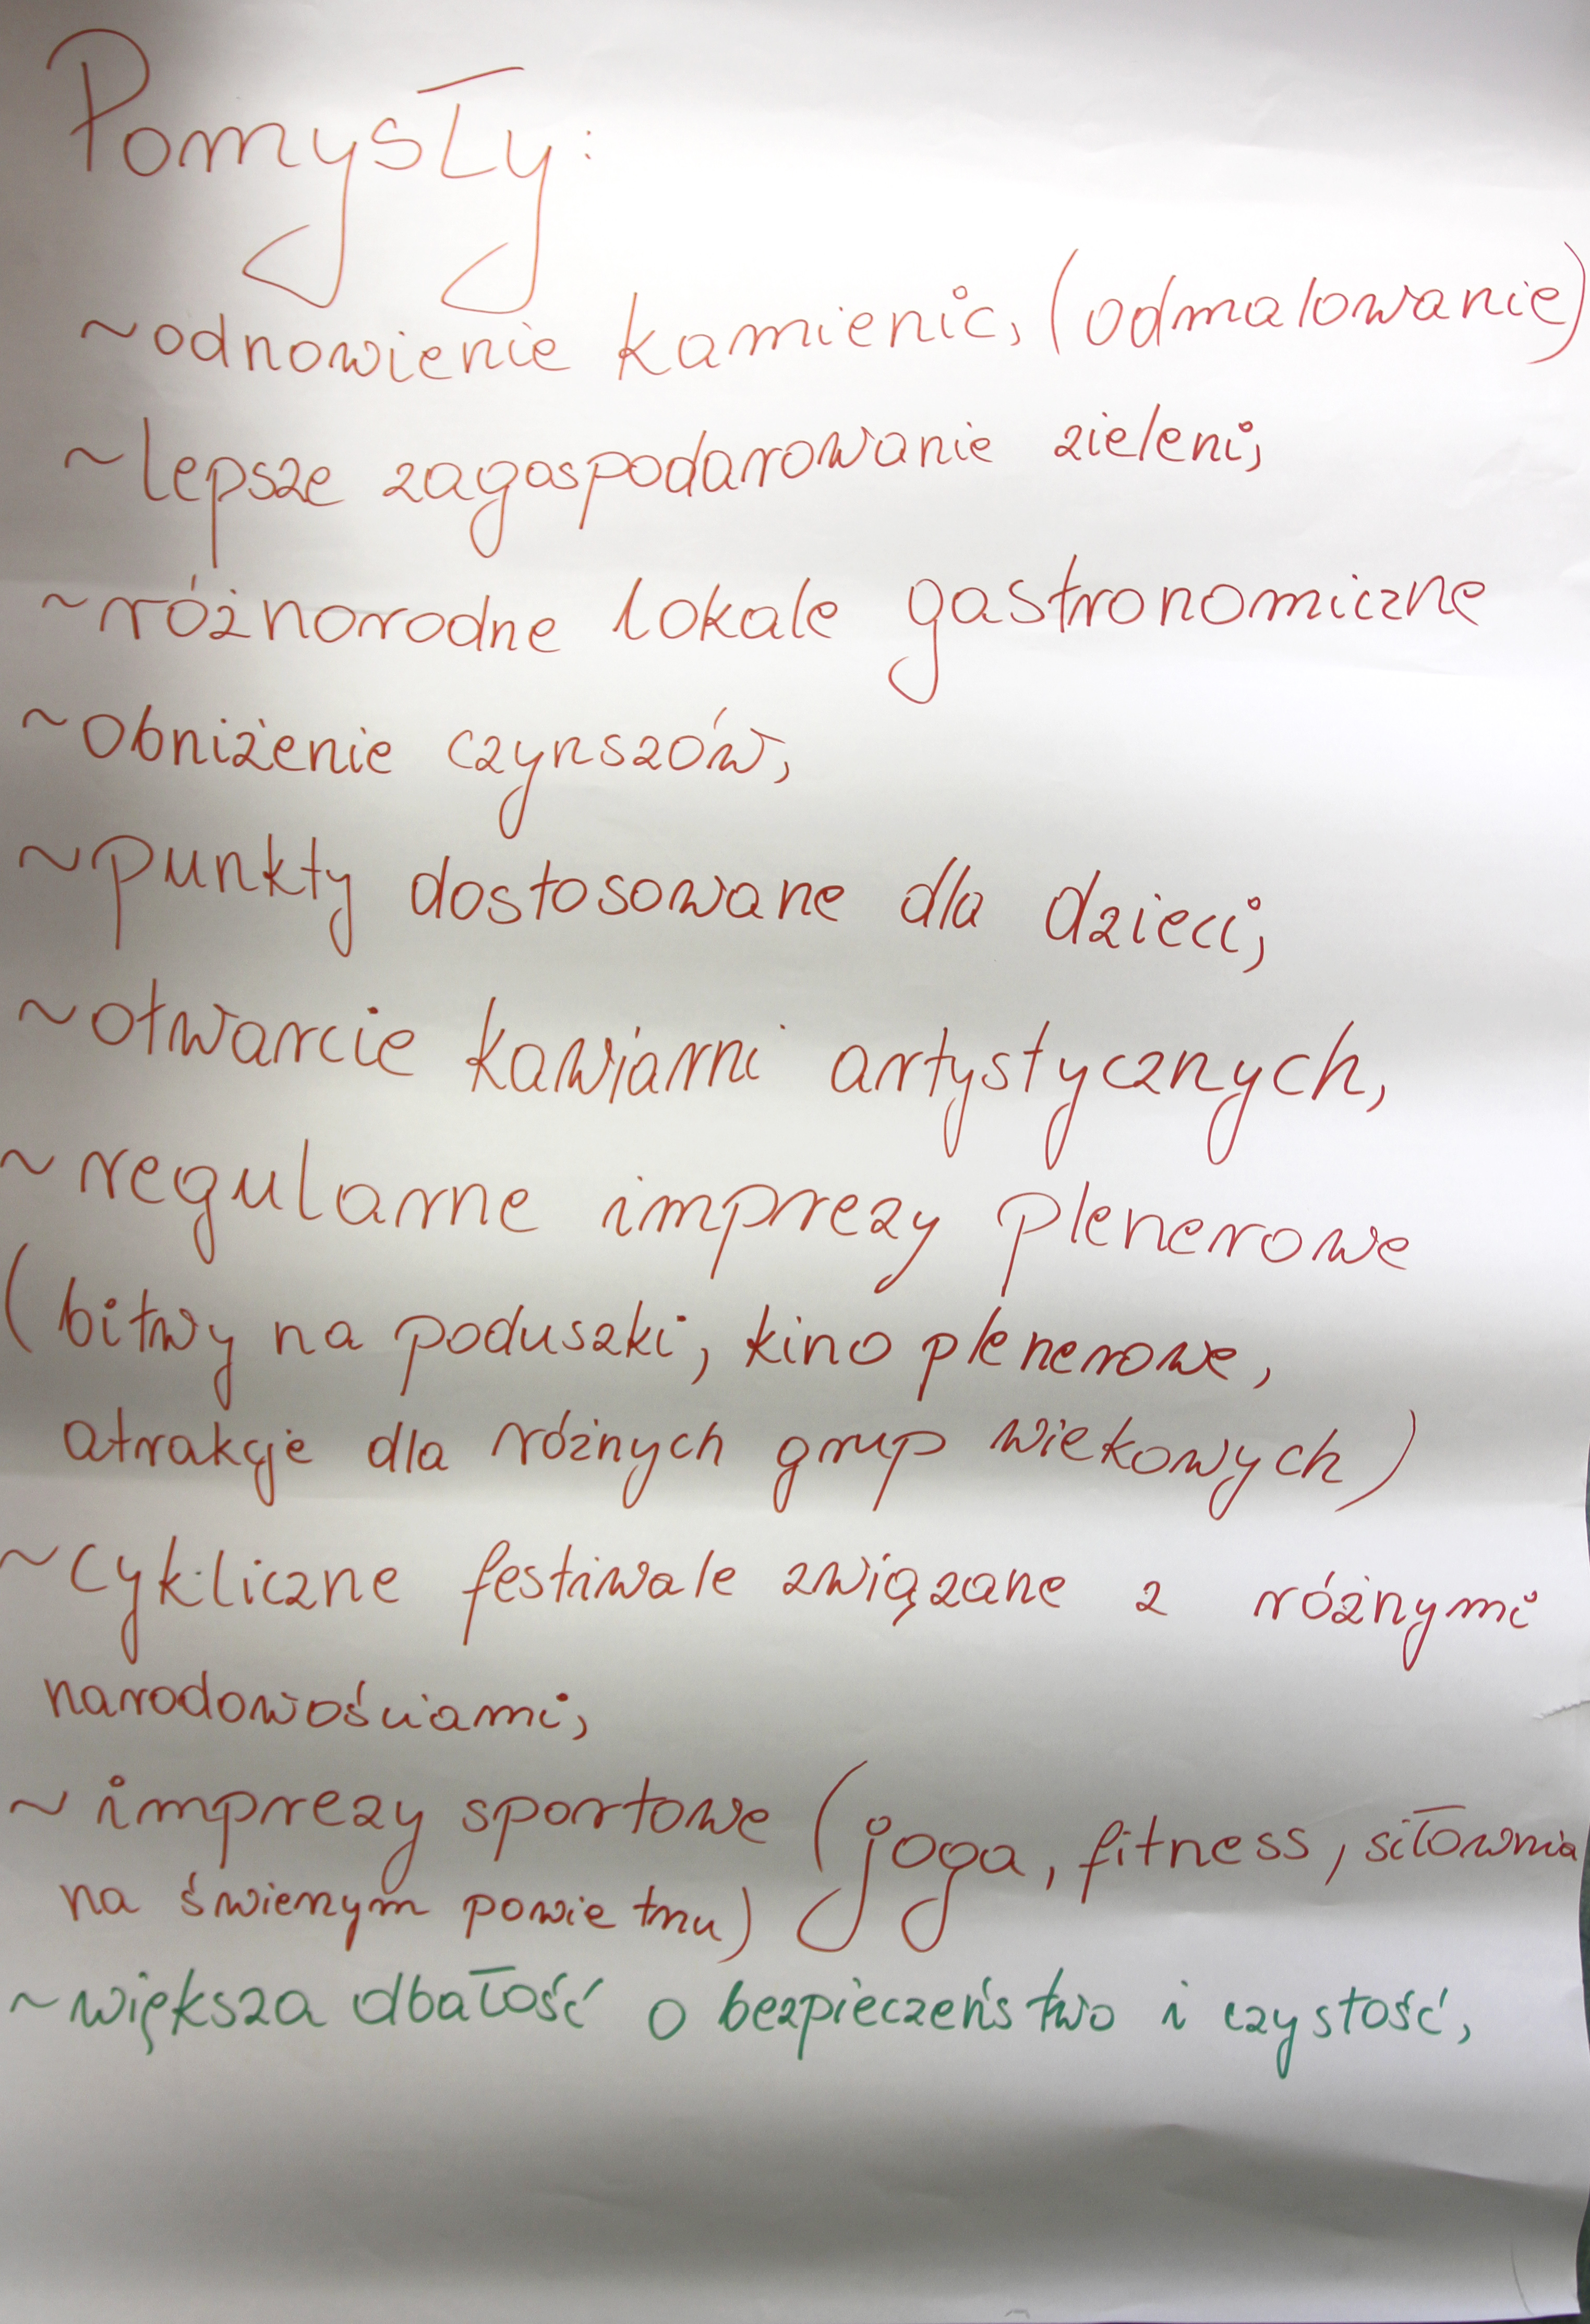 Pomysły:
~odnowienie kamienic, (odmalowanie)
~lepsze zagospodarowanie zieleni,
~różnorodne lokale gastronomiczne
~obniżenie czynszów,
~punkty dostosowane dla dzieci,
~otwarcie kawiarni artystycznych,
~regularne imprezy plenerowe
(bitwy na poduszki, kino plenerowe,
atrakcje dla różnych grup wiekowych)
~cykliczne festiwale związane z różnymi
narodowościami,
~ imprezy sportowe (joga, fitness, siłownia
na świerzym powietrzu)
~większa dbałość o bezpieczeństwo i czystość,